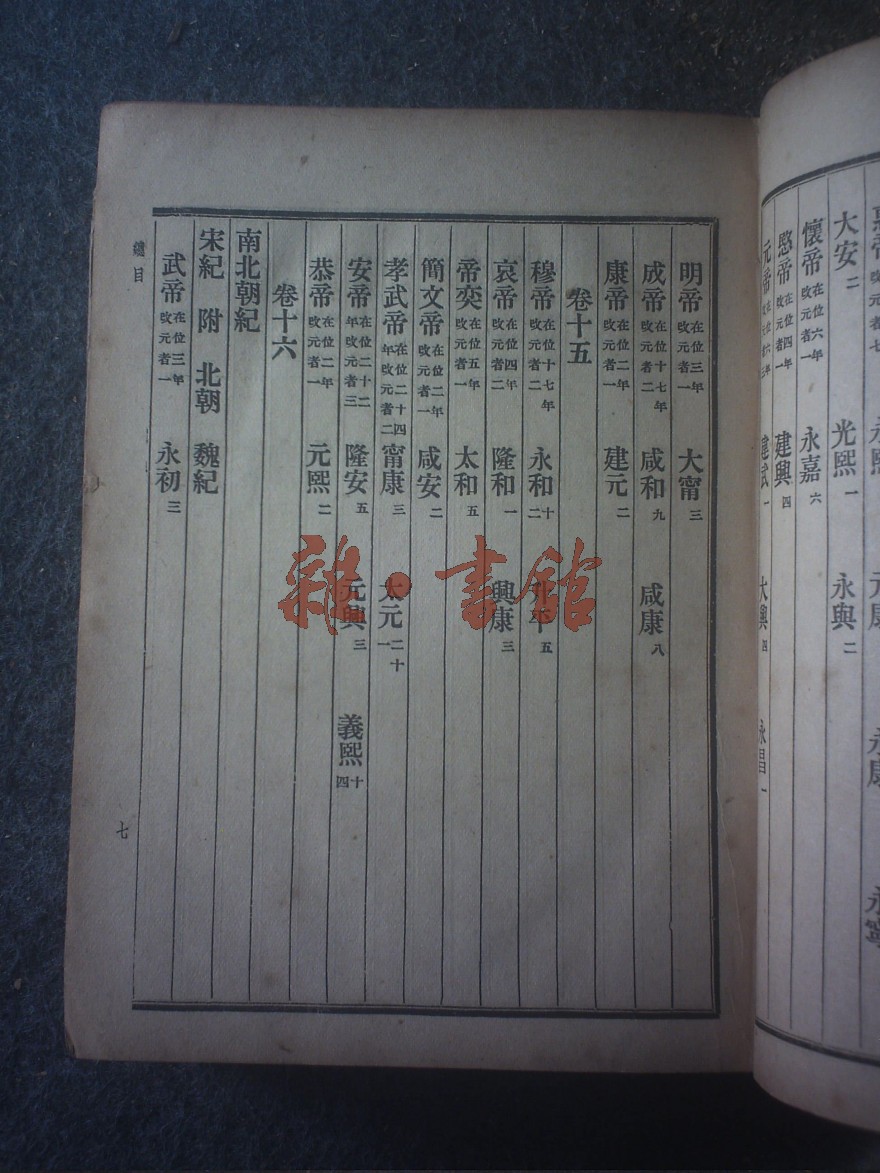 永熙 元康 永康 永寧
大安二 光熙一 永興二
懷帝在位六年改元者一 永嘉六
愍帝在位四年改元者一 建興四
元帝在位六年改元者三 建武一 大興四 永昌一
明帝在位三年改元者一 大甯三
成帝在位十七年改元者二 咸和九 咸康八
康帝在位二年改元者一 建元二
卷十五
穆帝在位十七年改元者二 永和十二 升平五
哀帝在位四年改元者二 隆和一 興康三
帝奕在位五年改元者一 太和五
簡文帝在位二年改元者一 咸安二
孝武帝在位二十四年改元者二 甯康三 太元二十一
安帝在位二十二年改元者三 隆安五 元興三 義熙十四
恭帝在位二年改元者一 元熙二
卷十六
南北朝紀
宋紀 附 北朝 魏紀
武帝在位三年改元者一 永初三
總目
七
雜·書館